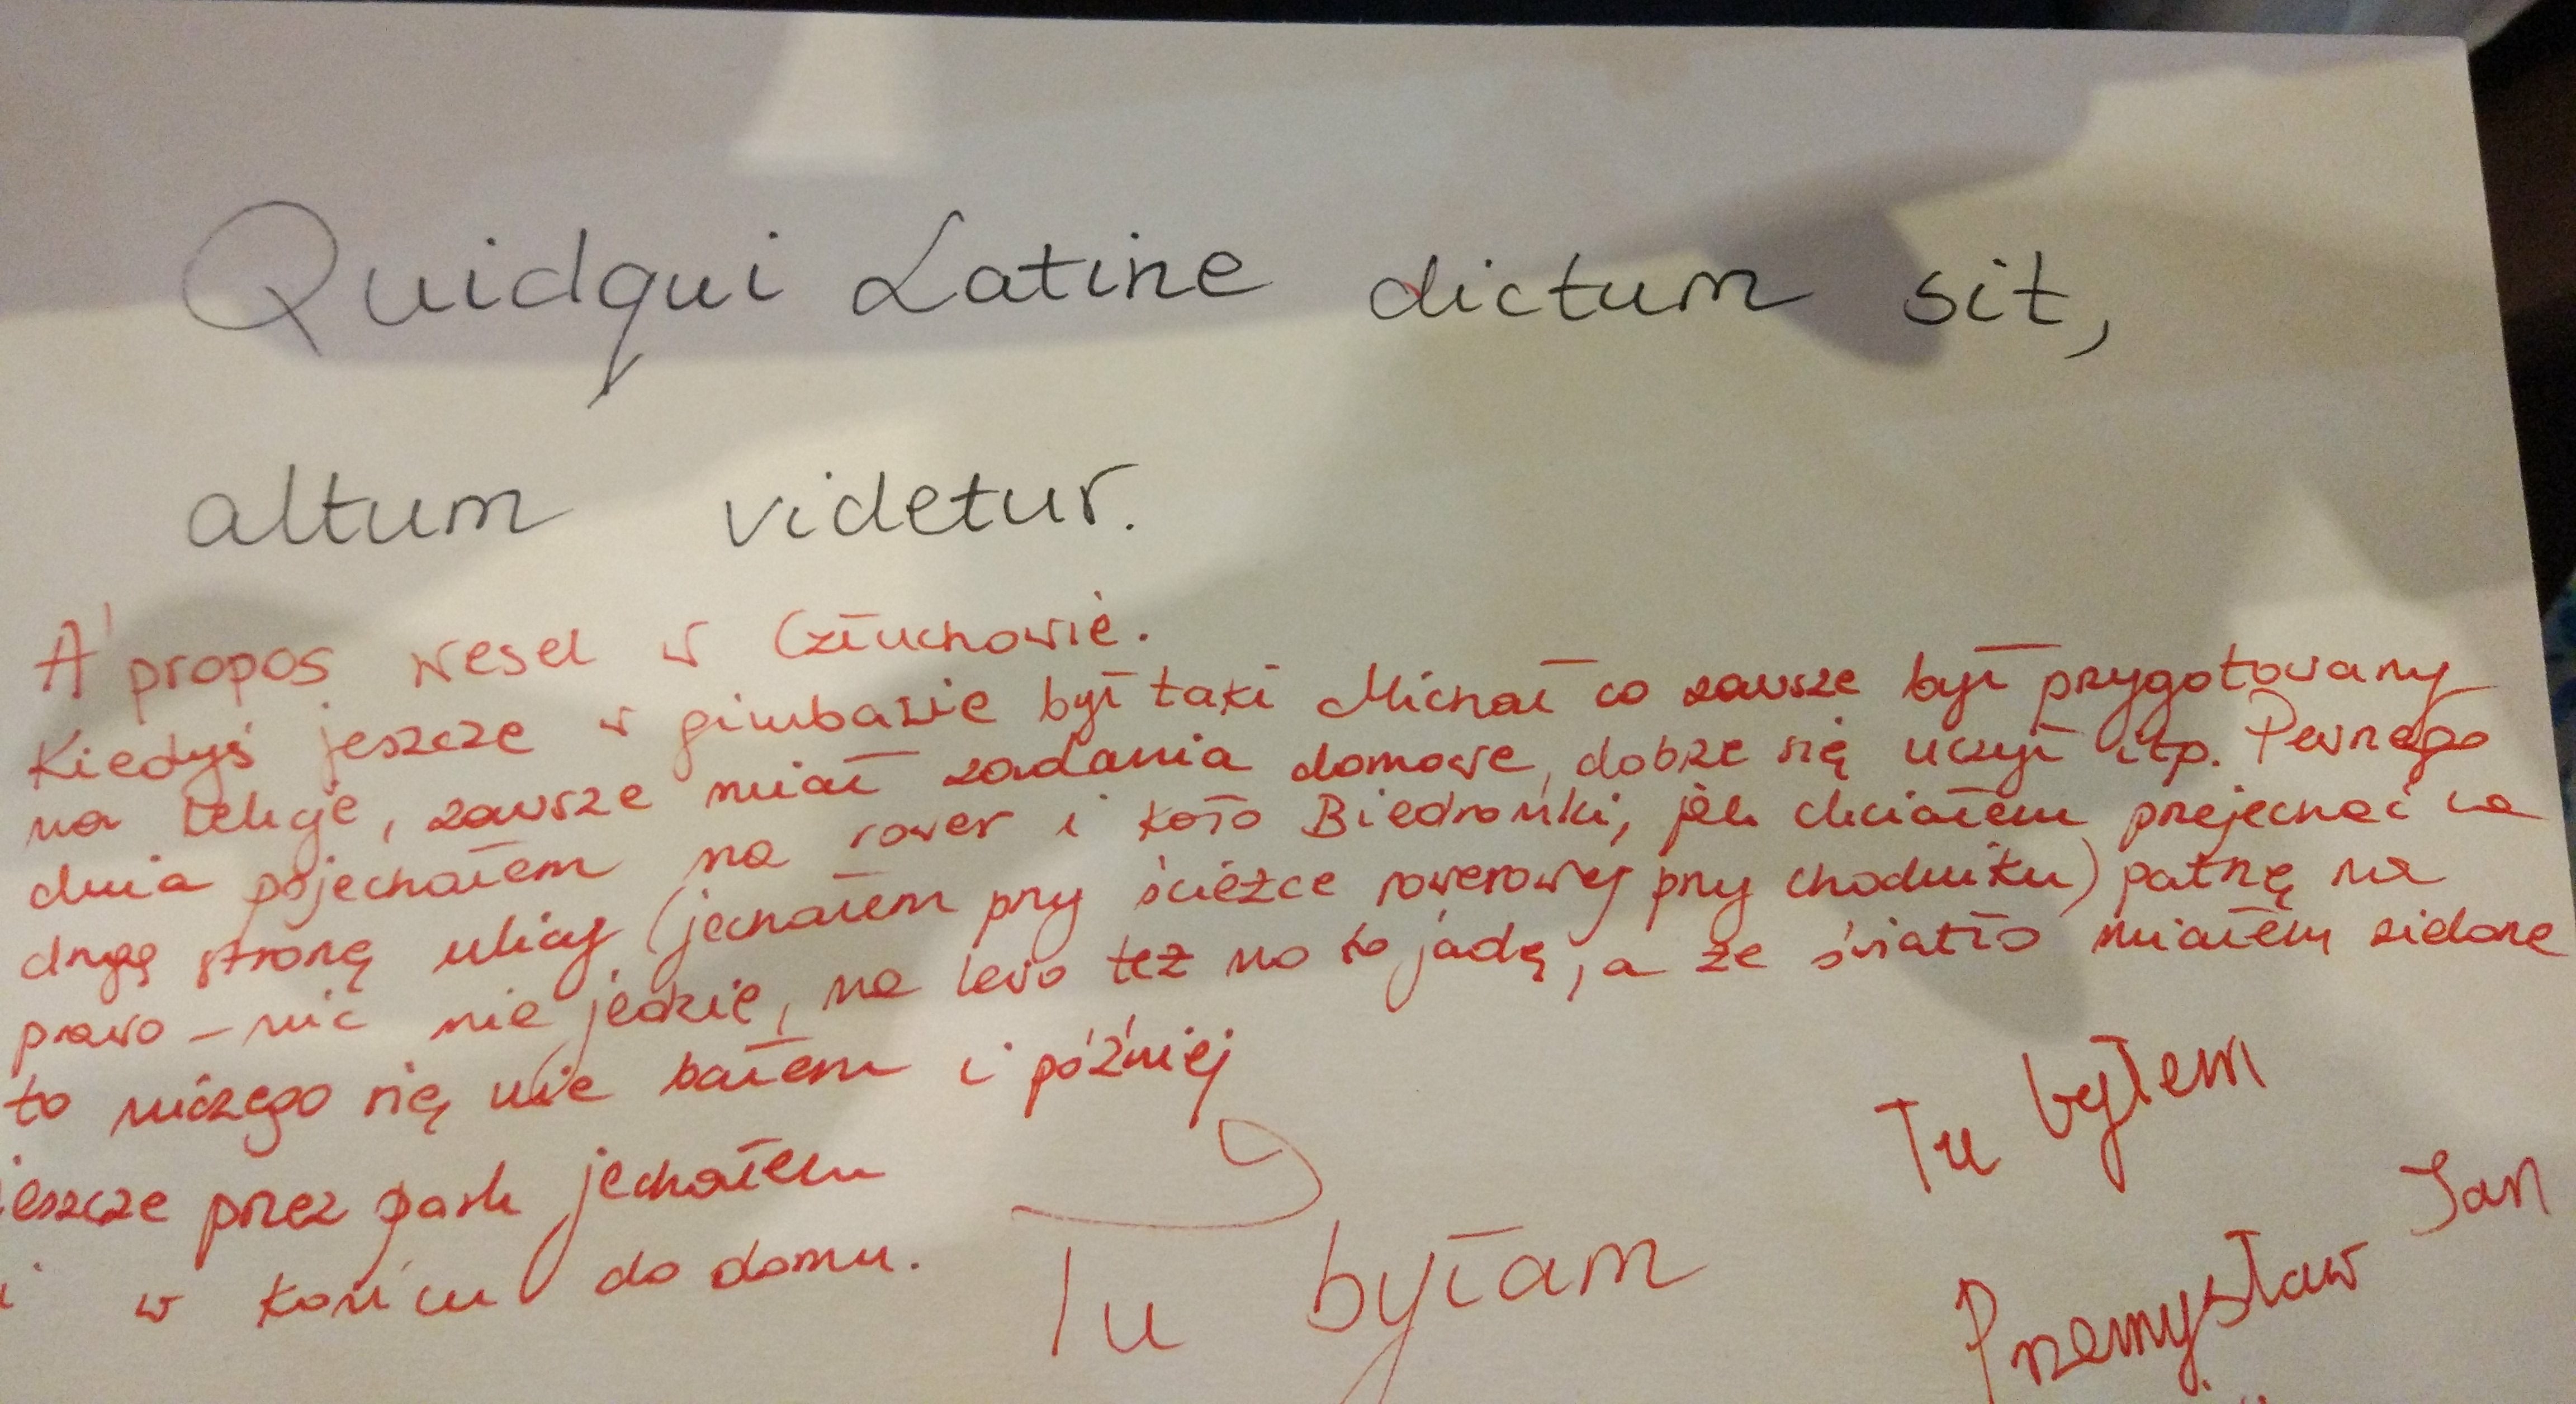 Quidqui Latine dictum sit,
altum videtur.
A' propos wesel w Człuchowie.
Kiedyś jeszcze w gimbazie był taki Michał co zawsze był przygotowany
na lekcje, zawsze miał zadania domowe, dobrze się uczył itp. Pewnego
dnia pojechałem na rower i koło Biedronki, jak chciałem przejechać na
drugą stronę ulicy (jechałem przy ścieżce rowerowej przy chodniku) patrzę na
prawo - nic nie jedzie, na lewo też no to jadę, a że światło miałem zielone
to niczego się nie bałem i później
jeszcze przez park jechałem
i w końcu do domu.
Tu byłam
Tu byłem
Przemysław Jan